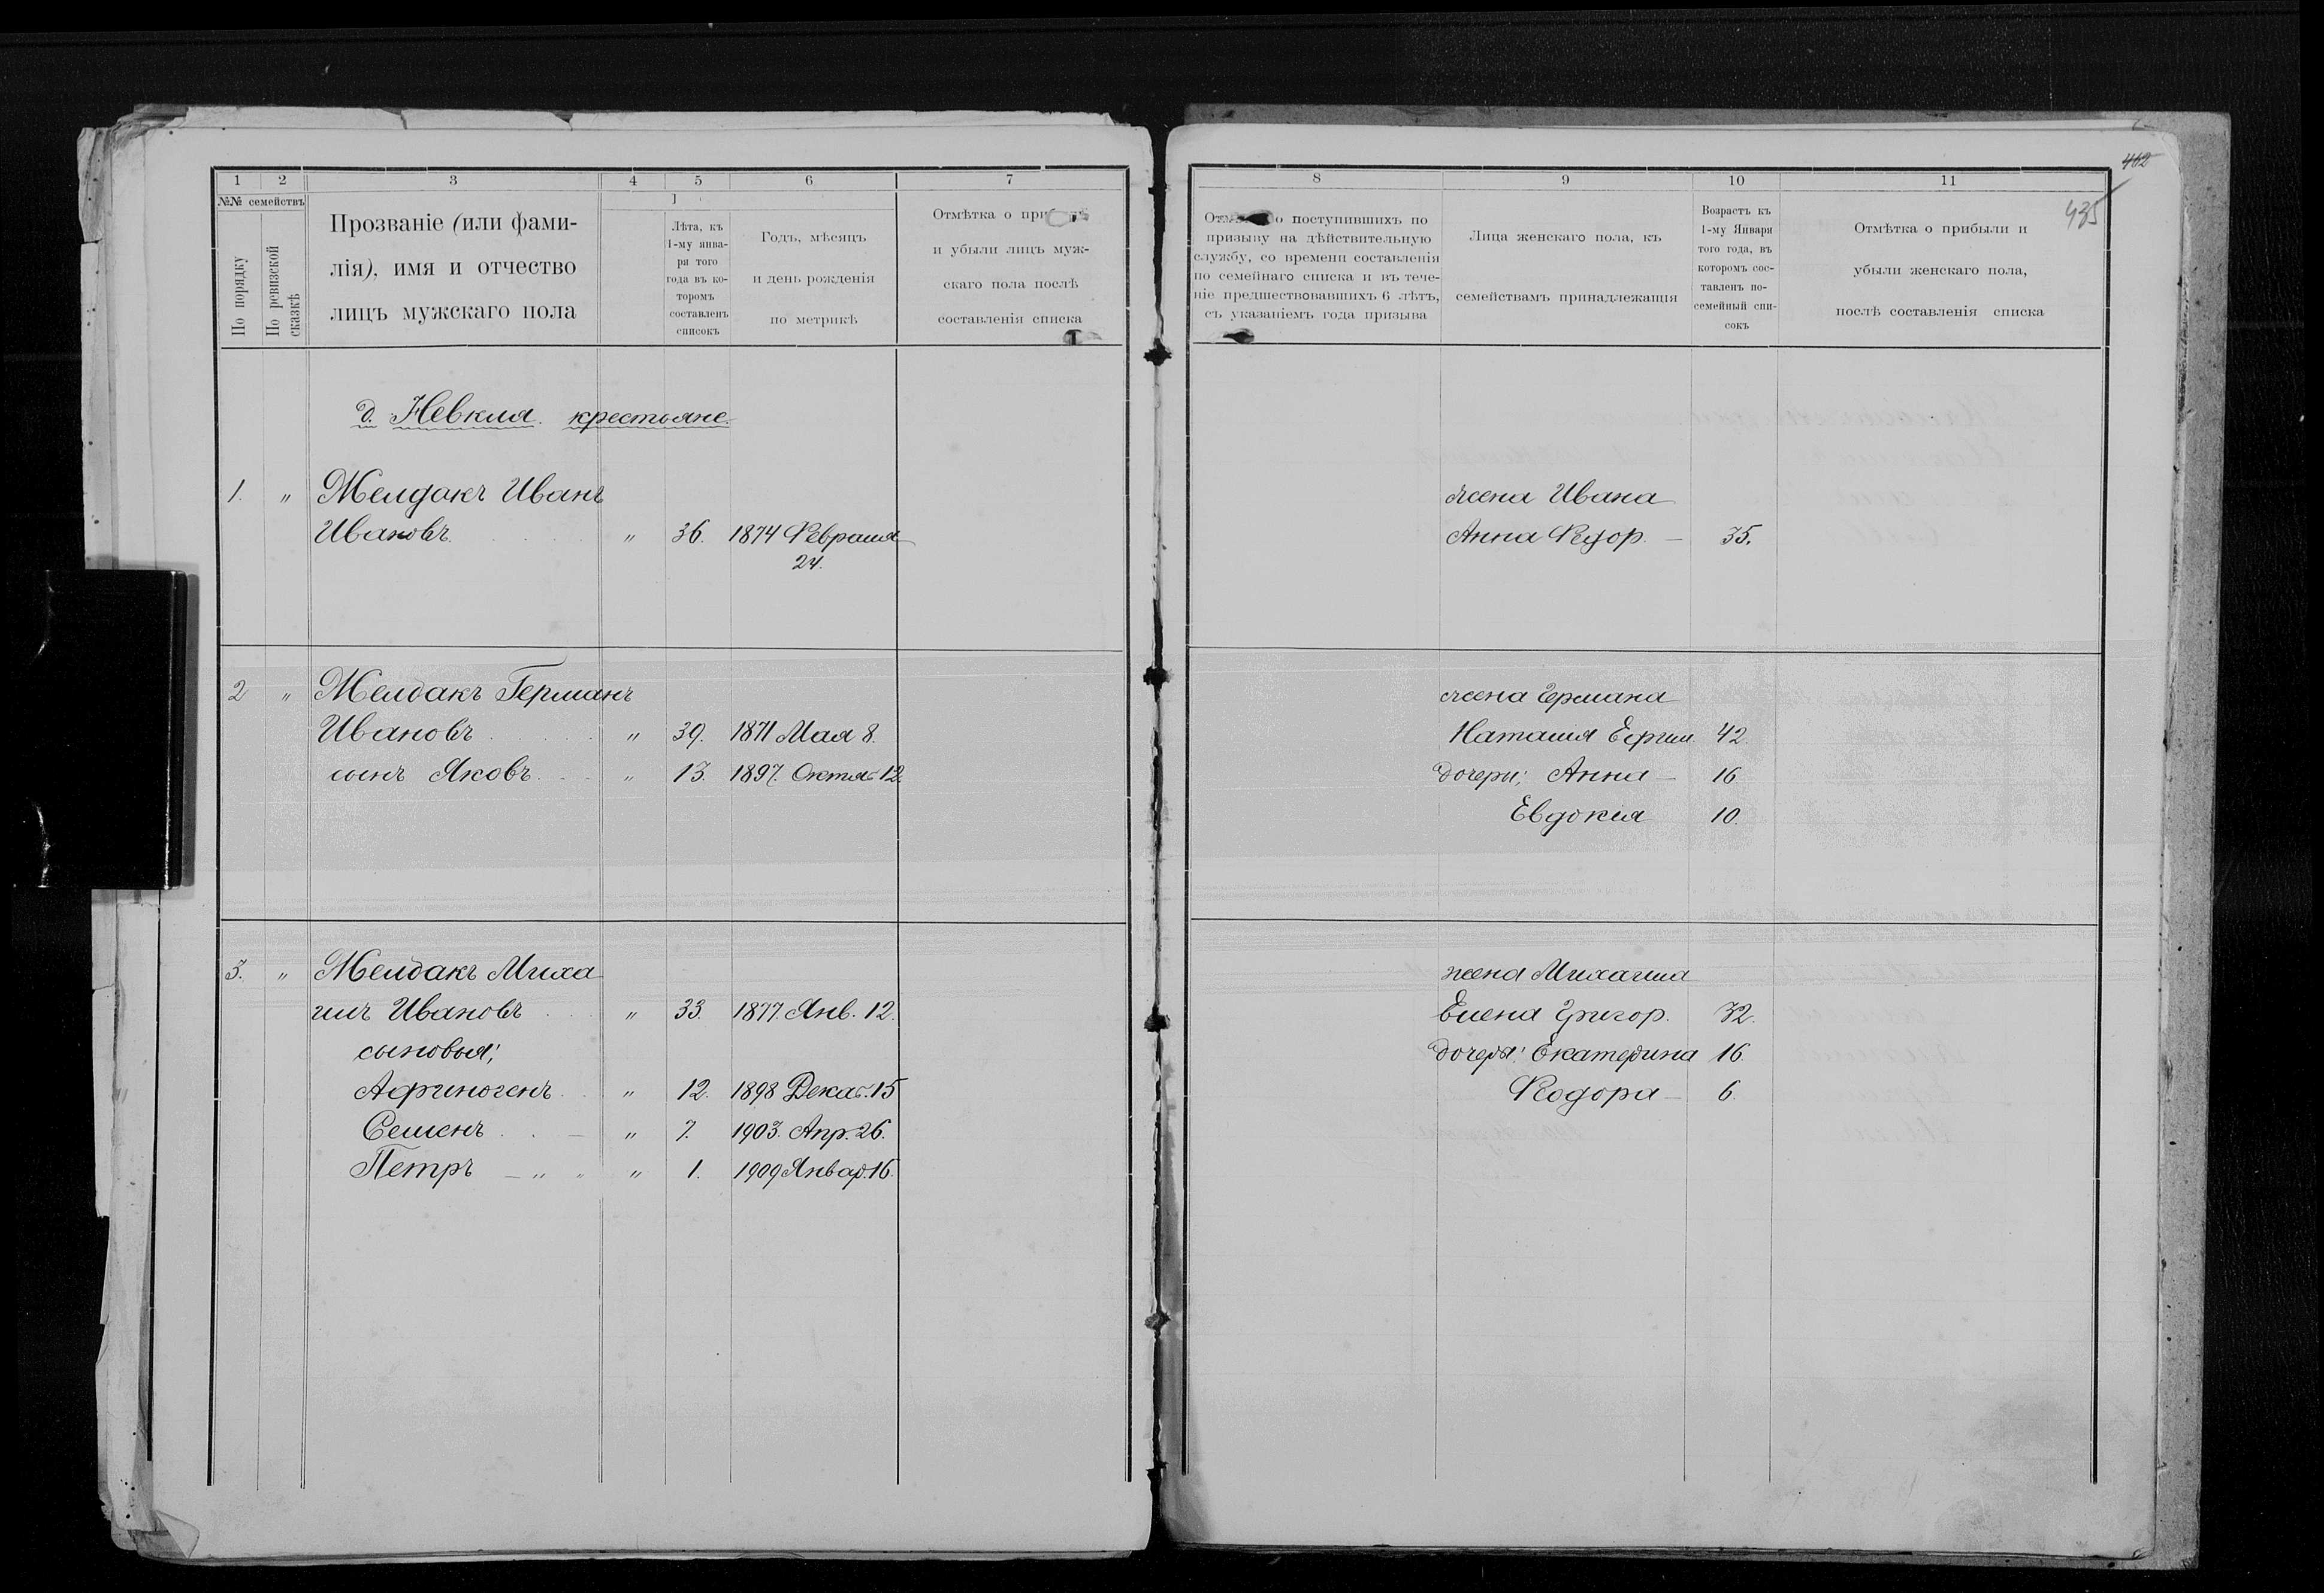 1 2 3 4 5 6 7
№№ семействъ
По порядку
По ревизской сказкѣ
Прозваніе (или фами-
лія), имя и отчество
лицъ мужскаго пола
Лѣта, къ
1-му янва-
ря того
года въ ко-
торомъ
составленъ
списокъ
Годъ, мѣсяцъ
и день рожденія
по метрикѣ
Отмѣтка о
и убыли лицъ муж-
скаго пола послѣ
составленія списка
д. Невкля крестьяне.
1. " Мелдакъ Иванъ
Ивановъ " 36. 1874 Февраля
24.
2 " Мелдакъ Германъ
Ивановъ " 39. 1871 Мая 8.
сынъ Яковъ " 13. 1897. Октяб 12.
3. " Мелдакъ Миха
илъ Ивановъ " 33. 1877. Янв. 12.
сыновья;
Афиногенъ " 12. 1898 Декаб. 15
Семенъ " 7. 1903. Апр. 26.
Петръ " 1. 1909 Январ. 16.
402
435
8 9 10 11
о поступившихъ по
призыву на дѣйствительную
службу, со времени составленія
по семейнаго списка и въ тече-
ніе предшествовавшихъ 6 лѣтъ,
съ указаніемъ года призыва
Лица женскаго пола, къ
семействамъ принадлежащія
Возрастъ къ
1-му Января
того года, въ
которомъ сос-
тавленъ по-
семейный спи-
сокъ
Отмѣтка о прибыли и
убыли женскаго пола,
послѣ составленія списка
жена Ивана
Анна Федор. — 35.
жена Германа
Наталия Ефим. 42.
дочери; Анна — 16
Евдокия 10.
жена Михаила
Елена Григор. 32.
дочеря: Екатерина 16.
Федора — 6.